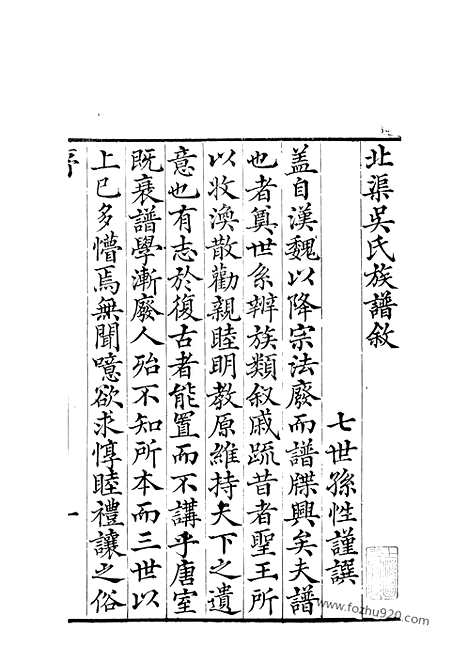 北渠吳氏族譜敘
七世孫性謹譔
盖自漢魏以降宗法廢而譜牒興矣夫譜
也者奠世系辨族類叙戚疏昔者聖王所
以收渙散勸親睦明教原維持天下之遺
意也有志於復古者能置而不講乎唐室
既衰譜學漸廢人殆不知所本而三世以
上已多懵焉無聞噫欲求惇睦禮讓之俗
序
一
www.fozhu920.com